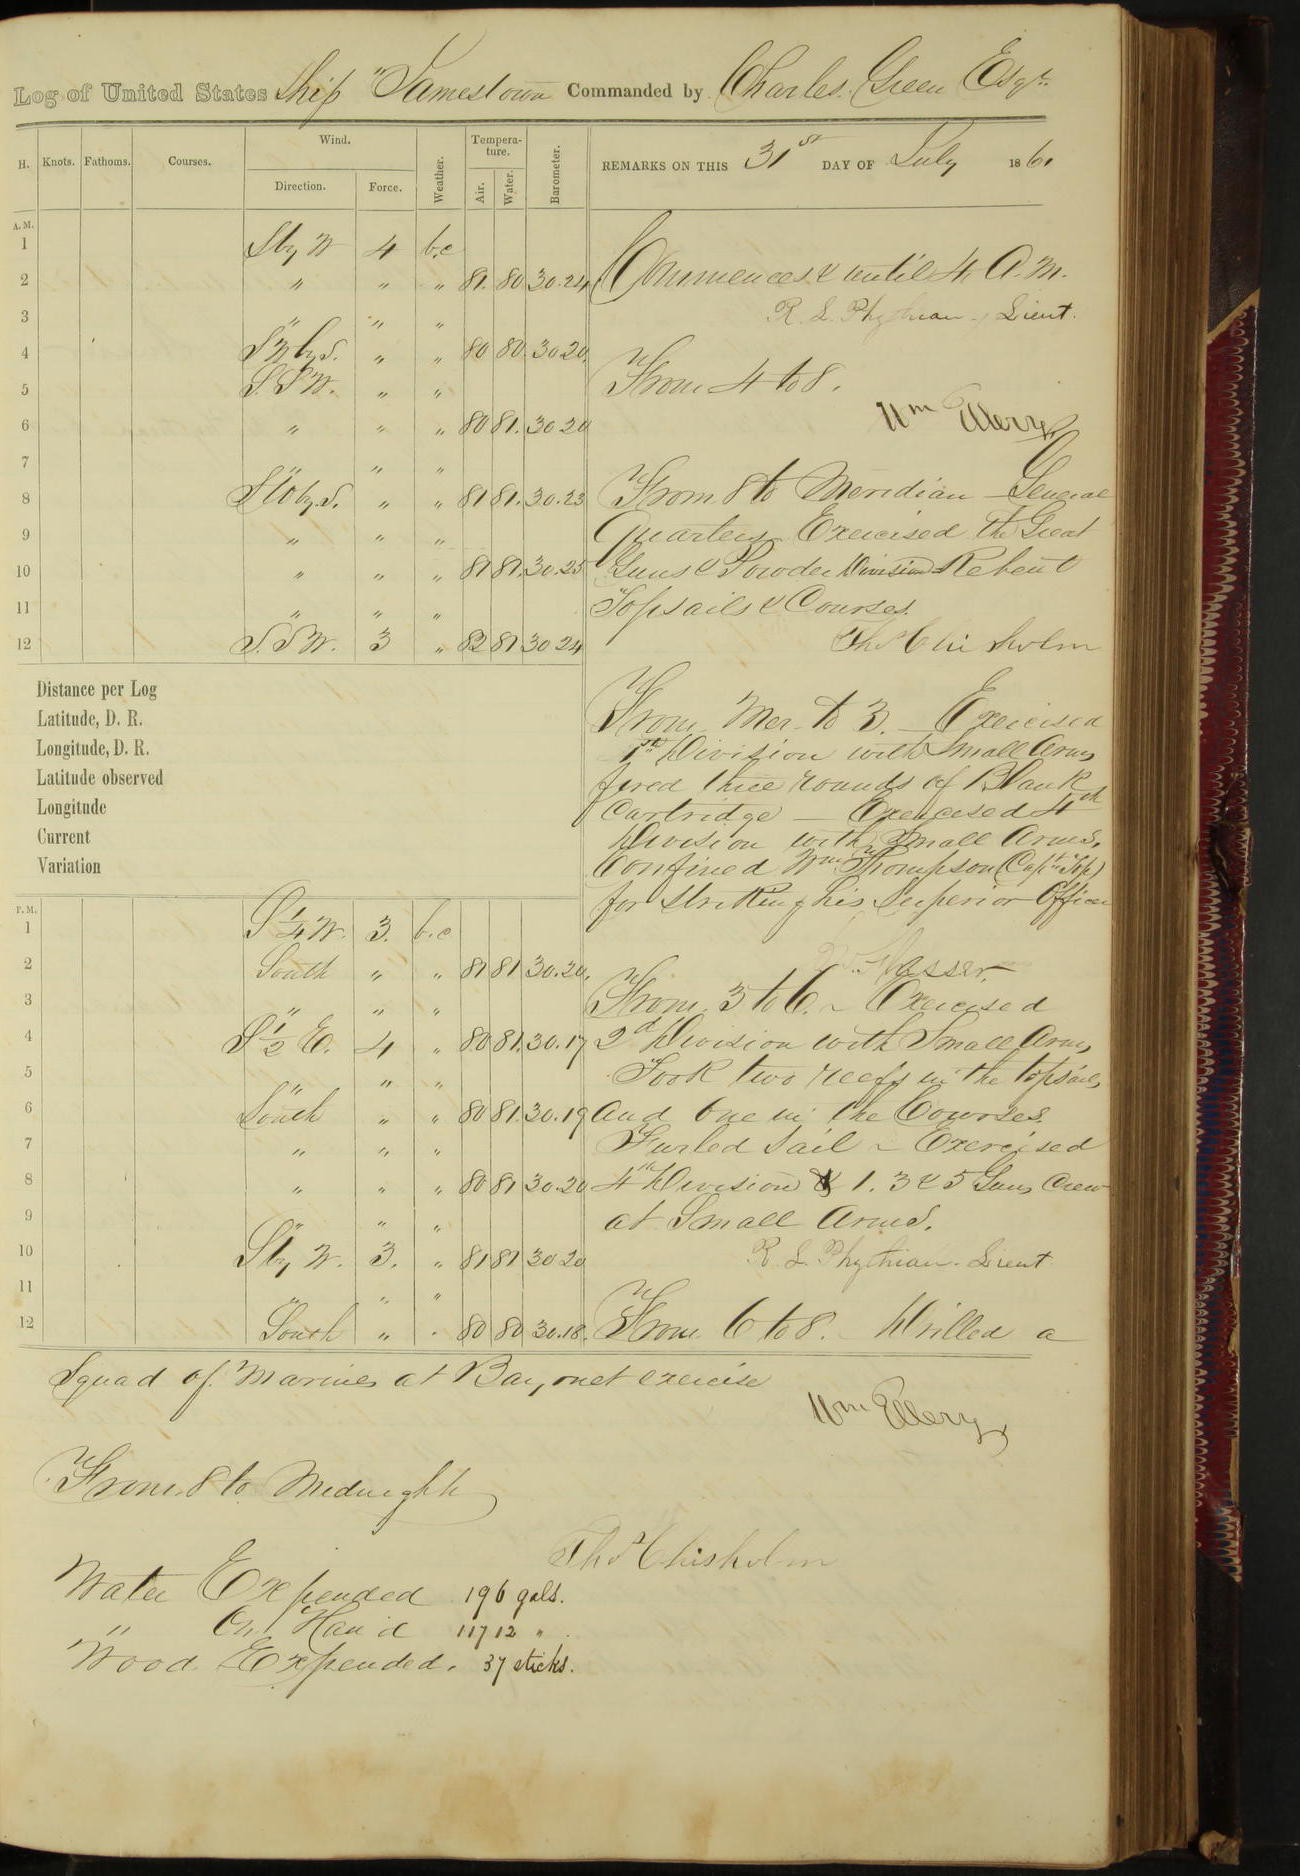 Log of United States Ship "Jamestown Commanded by Charles Green Esqr.
H. Knots. Fathoms. Courses. Wind. Direction. Force. Weather. Temperature. Air. Water. Barometer.
REMARKS ON THIS 31st DAY OF July 1861
A.M.
1 S by W 4 b.c
2 " " " 81. 80 30.24
3 " " "
4 SW by S. " " 80 80. 30 20.
5 S.S.W. " "
6 " " " 80 81. 30 20
7 " " "
8 SW by S. " " 81 81. 30.23
9 " " "
10 " " " 81 81. 30.25
11 " " "
12 S.S.W. 3 " 82 81 30 24
Commences & until 4 A.M.
R. L. Phythian, Lieut.
From 4 to 8.
Wm Ellery
From 8 to Meridian General
Quarters Exercised the Great
Guns & Powder Division Rebent
Topsails & Courses.
Thos Chisholm
Distance per Log
Latitude, D. R.
Longitude, D. R.
Latitude observed
Longitude
Current
Variation
From Mer. to 3. — Exercised
1st Division with Small Arms
fired three rounds of Blank
Cartridge — Exercised 4th
Division with Small Arms.
Confined Wm Thompson (Capt Top)
for striking his Superior Officer
P.M.
1 S 1/4 W. 3. b.c
2 South " " 81 81 30.20.
3 " " "
4 S 1/2 E. 4 " 80 81. 30.17
5 " " "
6 South " " 80 81. 30.19
7 " " "
8 " " " 80 81 30.20
9 " " "
10 S by W. 3. " 81 81 30 20
11 " " "
12 South " " 80 80 30.18.
From 3 to 6. ~ Exercised
2d Division with Small Arms
Took two reefs in the topsails
and one in the Courses.
Furled Sail ~ Exercised
4th Division & 1. 3 & 5 Guns Crew
at Small Arms.
R. L. Phythian. Lieut
From 6 to 8. Drilled a
Squad of Marines at Bayonet exercise
Wm Ellery
From 8 to Midnight
Thos Chisholm
Water Expended 196 gals.
" On Hand 11712 "
Wood Expended. 37 sticks.